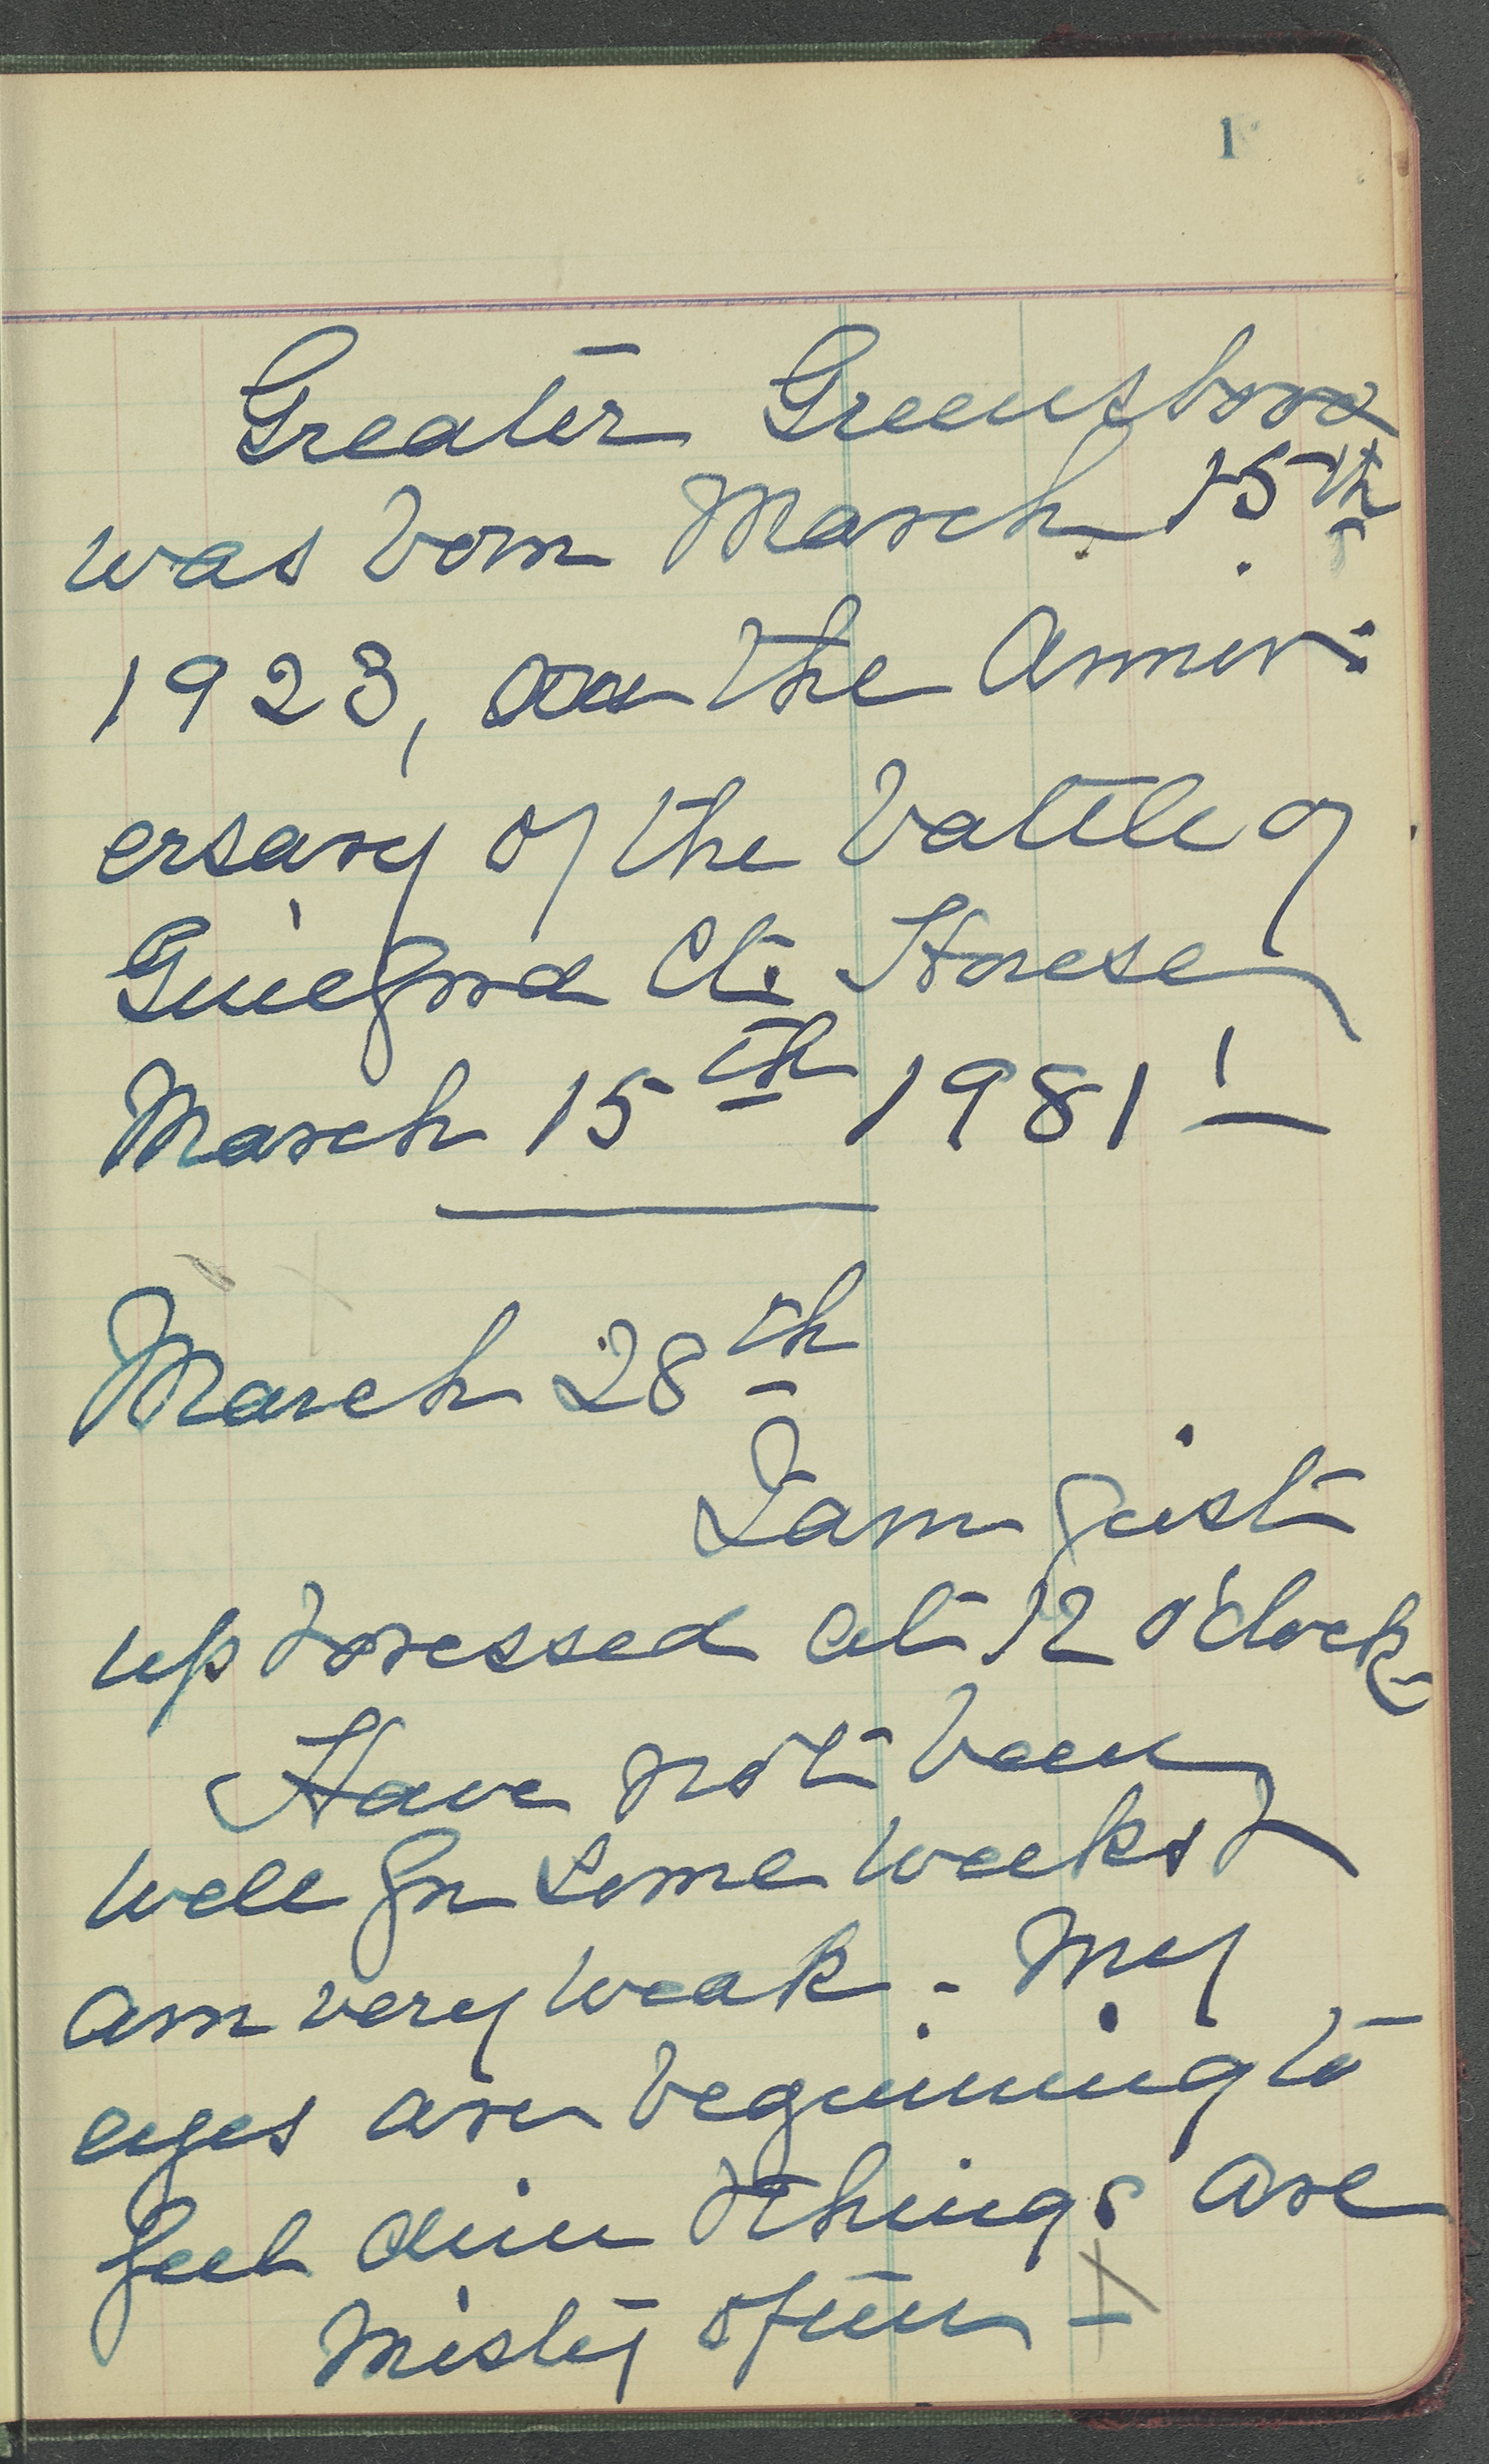 1
Greater Greensboro
was born March 15th
1923, on the Anniv-
ersary of the battle of
Guilford Ct. House,
March 15th 1981!
March 28th
I am just
up & dressed at 12 o'clock -
Have not been
well for some weeks &
am very weak - My
eyes are beginning to
feel dim & things are
misty often -